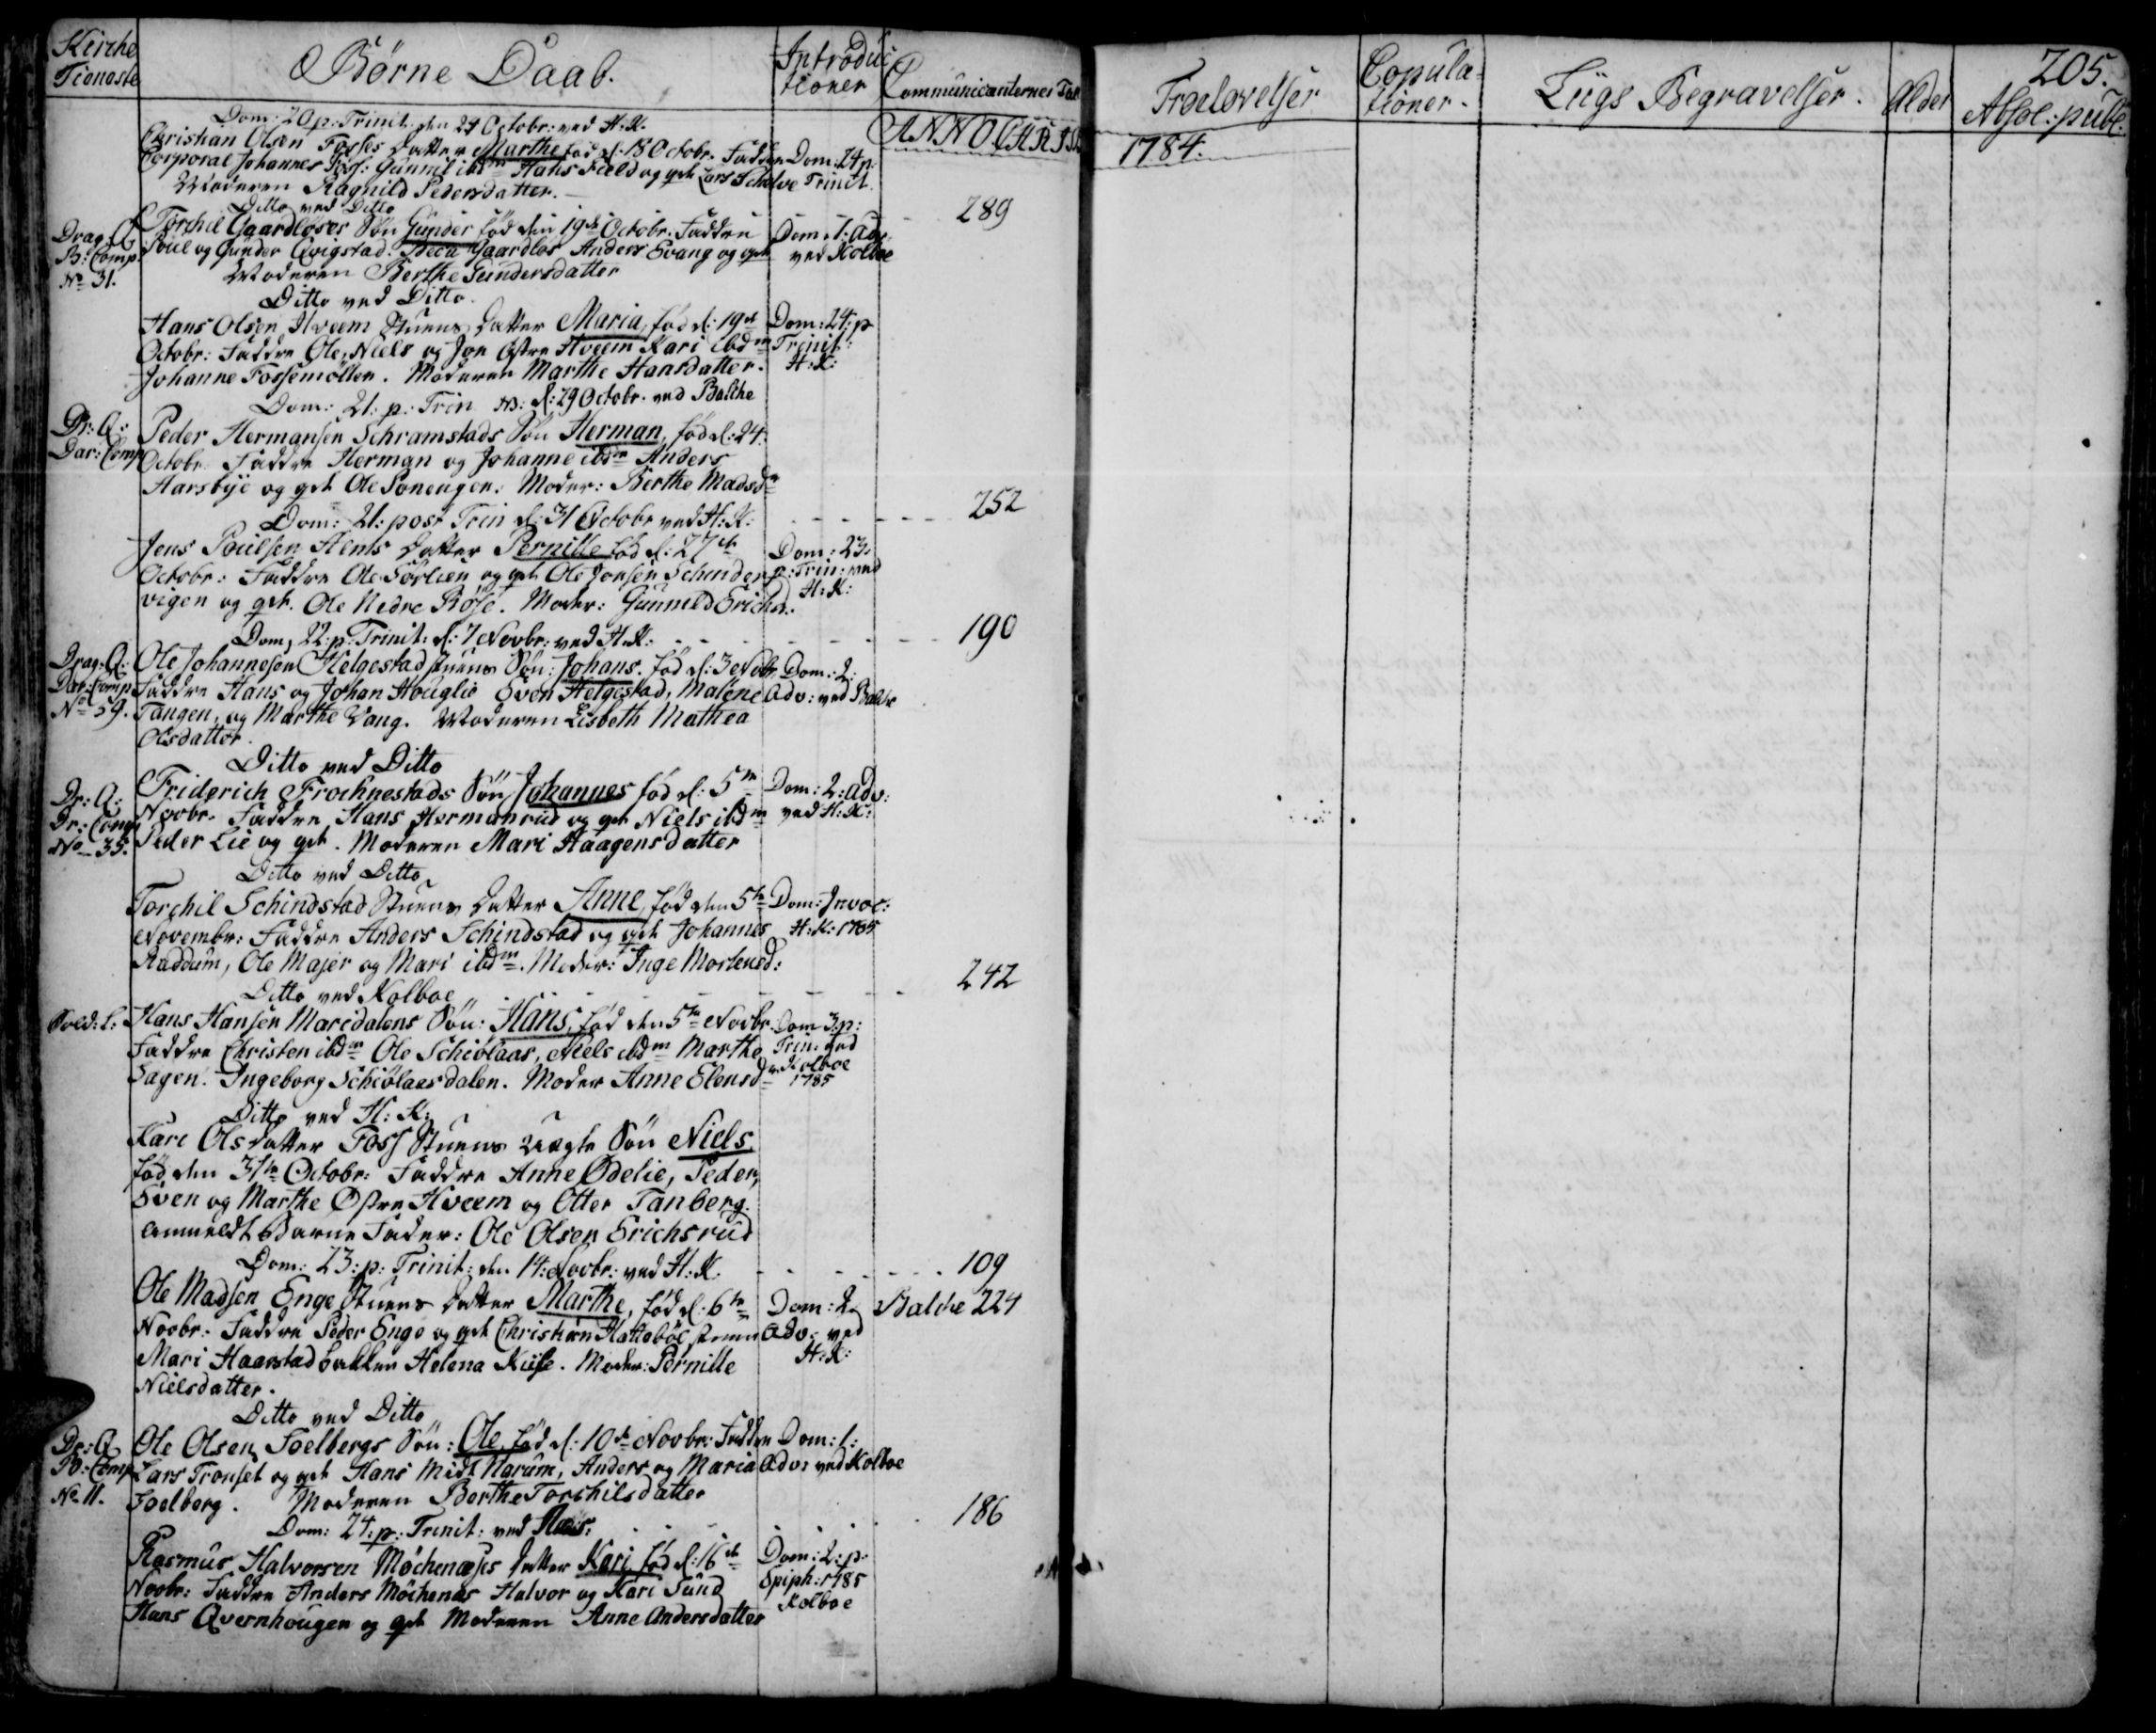 Kirche
Tieneste
Børne Daab.
Introduc
tioner
Communicanternes Tal
ANNO CHRISTI
Dom: 20 p: Trinit. den 24 Octobr: ved H: K.
Christian Olsen Fosses Datter Marthe fød d: 18 Octobr. Faddre
Corporal Johannes Foss: Gunnil ibdm Hans Field og qvh Lars Schelve
Moderen Ragnild Pedersdatter.
Dom: 24 p.
Trinit.
289
Ditto ved Ditto
Drag: Q
B: Comp
No 31.
Torchel Gaardløses Søn Gunder fød den 19de Octobr. Faddre
Poul og Gunder Evigstad. Beca Gaardløs Anders Evang og qvh
Moderen Berthe Gundersdatter
Dom: 1: Adv:
ved Kolboe
Ditto ved Ditto.
Hans Olsen Hveem Stuens Datter Maria, fød d: 19de
Octobr: Faddre Ole, Niels og Jon Østre Hveem Kari ibdm
Johanne Fossemøllen. Moderen Marthe Hansdatter.
Dom: 24: p
Trinit:
H: K:
Dom: 21: p: Trin d: 29 Octobr. ved Balche
Dr: Q:
Dar: Comp
Peder Hermansen Schramstads Søn Herman, fød d: 24.
Octobr. Faddre Herman og Johanne ibdm Anders
Aarsbye og qvh Ole Sonengen. Moder: Berthe Madsdr
Dom: 21: post Trin d: 31 Octobr ved H: K:
252
Jens Poulsen Alents Datter Pernille fød d: 27de
Octobr: Faddre Ole Sørlien og qvh Ole Jonsen Schinder
vigen og qvh. Ole Nedre Røse. Moder: Gunnild Erichsd:
Dom: 23:
p: Trin: ved
H: K:
Dom, 22: p: Trinit: d: 7 Novbr: ved H: K:
190
Drag: Q:
Dar: Comp
No 59.
Ole Johannesen Helgestad stuens Søn: Johans. fød d: 3 Novbr.
Faddre Hans og Johan Houglie Even Helgestad, Malene
Tangen, og Marthe Vang. Moderen Lisbeth Mathea
Olsdatter.
Dom: 2:
Adv: ved Balche
Ditto ved Ditto
Dr: Q:
Dr: Comp
No 35.
Friderich Frochnestads Søn Johannes fød d: 5te
Novbr. Faddre Hans Hermanrud og qvh Niels ibdm
Peder Lie og qvh. Moderen Mari Haagensdatter
Dom: 2: Adv:
ved H: K:
Ditto ved Ditto
Torchil Schindstad Stuens Datter Anne, fød den 5te
Novembr: Faddre Anders Schindstad og qvh Johannes
Raddum, Ole Majer og Mari ibdm. Moder: Inge Mortensd:
Dom: Invoc:
H: K: 1785
Ditto ved Kolboe
242
Sold: L:
Hans Hansen Maridalens Søn: Hans, fød den 5te Novbr.
Faddre Christen ibdm Ole Schiølaas, Niels ibdm Marthe
Sagen. Ingeborg Schiølaasdalen. Moder Anne Elensdr
Dom 3: p:
Trin: ved
Kolboe
1785
Ditto ved H: K:
Kari Olsdatter Foss Stuens Uægte Søn Niels
fød den 31te Octobr: Faddre Anne Ødelie, Peder,
Even og Marthe Østre Hveem og Otter Tanberg.
anmeldt Barne Fader: Ole Olsen Erichsrud
Dom: 23: p: Trinit: den 14: Novbr: ved H: K.
109
Ole Madsen Enge Stuens Datter Marthe, fød d: 6te
Novbr: Faddre Peder Enge og qvh Christian Kattebøe stuen
Mari Haarstad bakken Helena Kiise. Moder: Pernille
Nielsdatter.
Dom: 2
Adv: ved
H: K:
Balche 224
Ditto ved Ditto
Dr: Q
B: Comp
No 11.
Ole Olsen Foelbergs Søn: Ole, fød d: 10de Novbr: Faddre
Lars Tronset og qvh Hans Midt Narum, Anders og Maria
Foelberg. Moderen Berthe Torchilsdatter
Dom: 1:
Adv: ved Kolboe
Dom: 24: p: Trinit: ved Næs:
186
Rasmus Halvorsen Møchenæses Datter Kari fød d: 16de
Novbr: Faddre Anders Møchenæs Halvor og Kari Sund
Hans Qvernhougen og qvh Moderen Anne Andersdatter
Dom: 2: p:
Epiph: 1785
Kolboe
Troelovelser
Copula-
tioner.
Liigs Begravelser.
Alder
205.
Absol: publ:
1784.